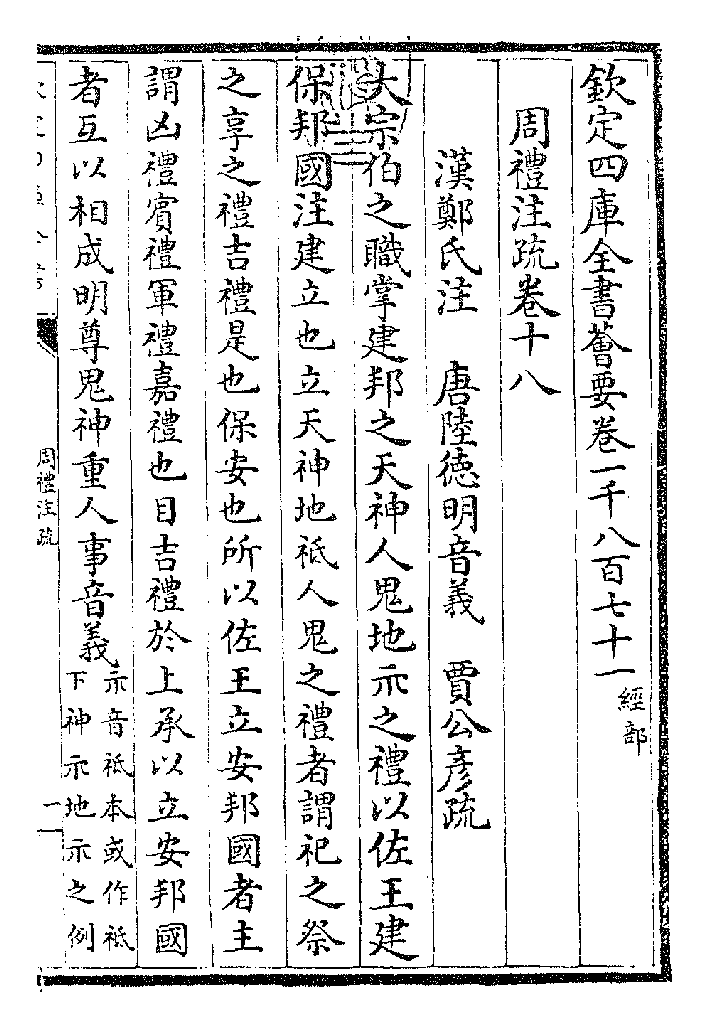 欽定四庫全書薈要卷一千八百七十一經部
周禮注疏卷十八
漢鄭氏注　唐陸德明音義　賈公彥疏
大宗伯之職掌建邦之天神人鬼地示之禮以佐王建
保邦國注建立也立天神地祗人鬼之禮者謂祀之祭
之享之禮吉禮是也保安也所以佐王立安邦國者主
謂凶禮賓禮軍禮嘉禮也目吉禮於上承以立安邦國
者互以相成明尊鬼神重人事音義示音祗本或作祗
下神示地示之例
周禮注疏
一